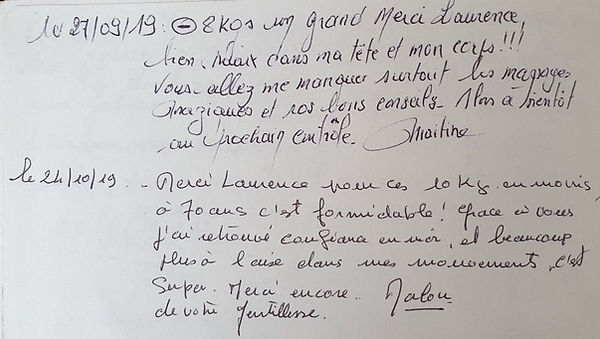 le 27/09/19 : ⊖ 8kgs un grand Merci Laurence,
bien mieux dans ma tête et mon corps !!!
Vous allez me manquer surtout les massages
magiques et vos bons conseils. Alors à bientôt
au prochain contrôle. Maitine
le 24/10/19. - Merci Laurence pour ces 10 Kg en moins,
à 70 ans c'est formidable ! grace à vous
j'ai retrouvé confiance en moi, et beaucoup
plus à l'aise dans mes mouvements, c'est
Super. Merci encore.. Malou
de votre gentillesse.